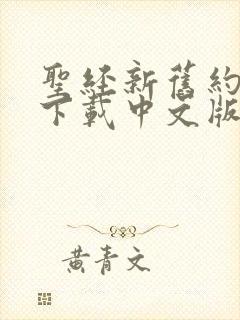 聖經新舊約
下載中文版
黃青文